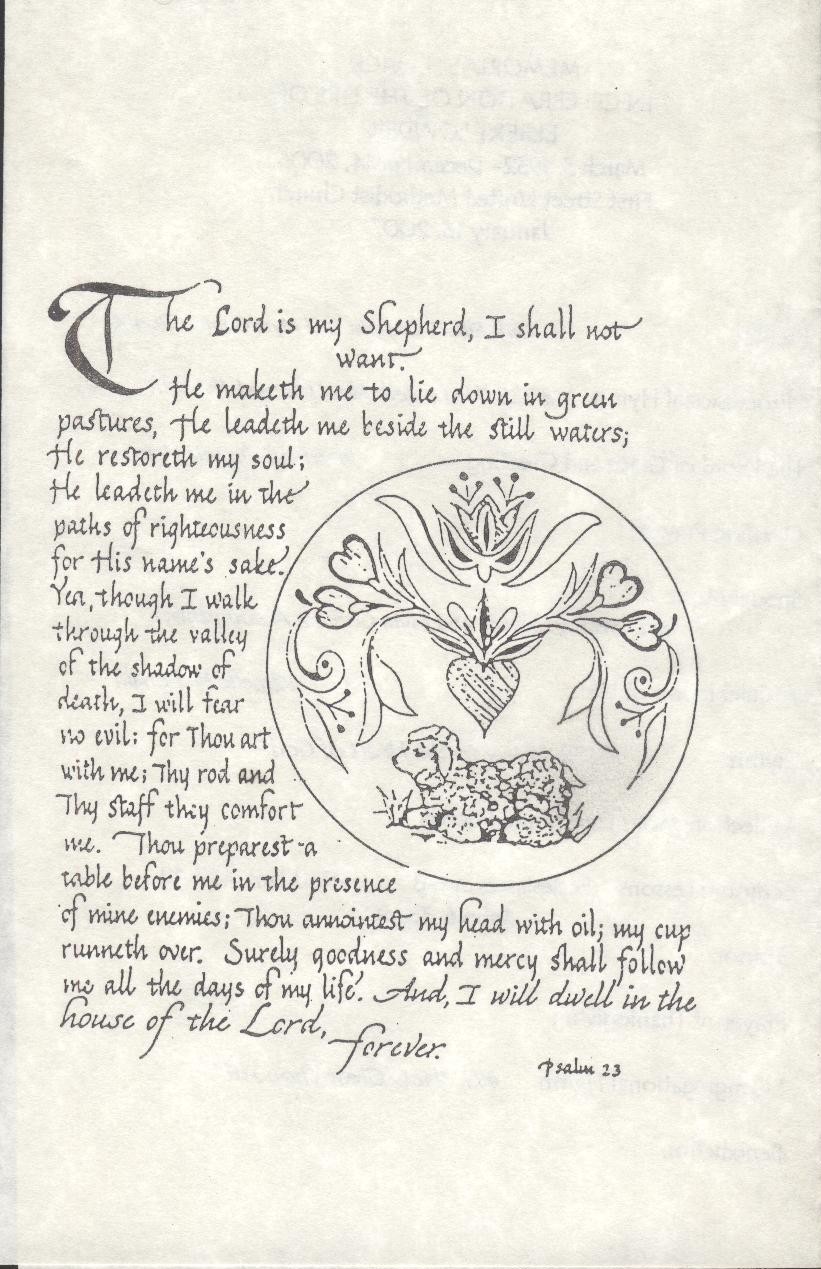 The Lord is my Shepherd, I shall not
want.
He maketh me to lie down in green
pastures, He leadeth me beside the still waters;
He restoreth my soul;
He leadeth me in the
paths of righteousness
for His name's sake.
Yea, though I walk
through the valley
of the shadow of
death, I will fear
no evil: for Thou art
with me; Thy rod and
Thy staff they comfort
me. Thou preparest a
table before me in the presence
of mine enemies; Thou annointest my head with oil; my cup
runneth over. Surely goodness and mercy shall follow
me all the days of my life. And, I will dwell in the
house of the Lord,
forever.
Psalm 23